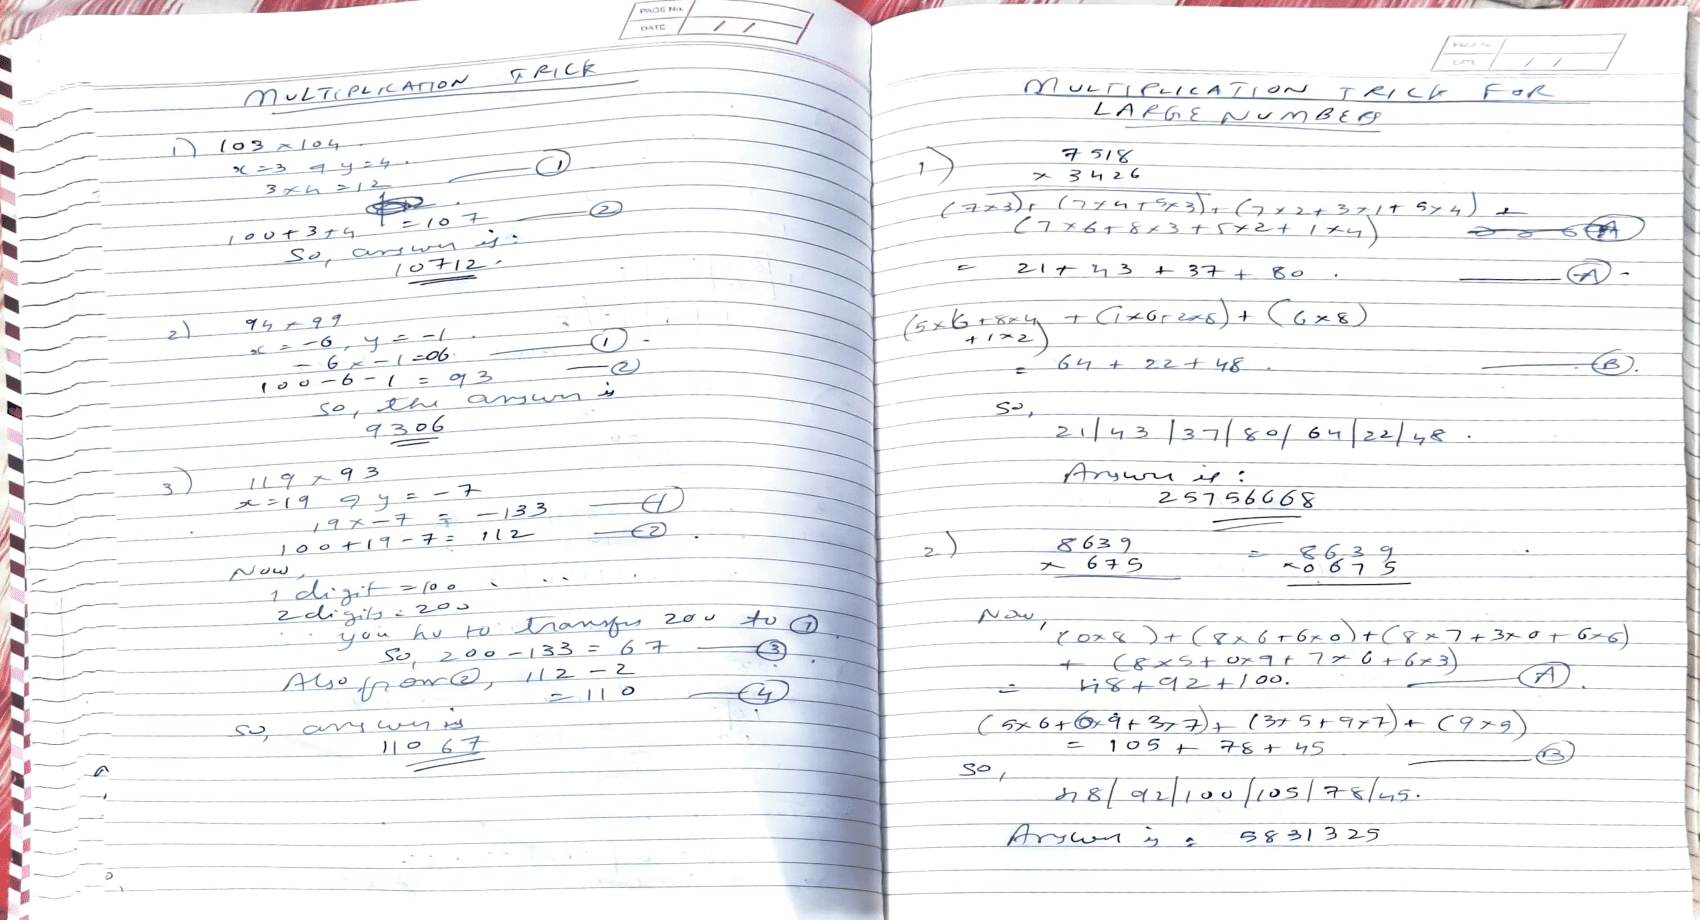 PAGE No.
DATE / /
MULTIPLICATION TRICK
1) 103 × 104
x = 3 , y = 4 .
3 × 4 = 12 ①
100 + 3 + 4 = 107 ②
So, answer is :
10712 .
2) 94 × 99
x = -6 , y = -1
-6 × -1 = 06 ①
100 - 6 - 1 = 93 ②
So, the answer is
9306
3) 119 × 93
x = 19 , y = -7
19 × -7 = -133 ①
100 + 19 - 7 = 112 ②
Now,
1 digit = 100
2 digits = 200
you hv to transfer 200 to ①
So, 200 - 133 = 67 ③
Also from ②, 112 - 2
= 110 ④
So, answer is
11067
PAGE No.
DATE / /
MULTIPLICATION TRICK FOR
LARGE NUMBERS
1) 7518
× 3426
(7×3)+ (7×4+5×3)+(7×2+3×1+5×4) +
(7×6+8×3+5×2+1×4)
= 21 + 43 + 37 + 80 . Ⓐ
(5×6+8×4 + (1×6+2×8) + (6×8)
+ 1×2)
= 64 + 22 + 48 . Ⓑ.
So,
21/43/37/80/64/22/48 .
Answer is :
25756668
2) 8639 = 8639
× 675 × 0675
Now,
(0×8)+(8×6+6×0)+(8×7+3×0+6×6)
+ (8×5+0×9+7×6+6×3)
= 48+92+100. Ⓐ.
(5×6+6×9+3×7)+ (3×5+9×7)+ (9×5)
= 105 + 78 + 45 Ⓑ
So,
48/92/100/105/78/45.
Answer is = 5831325